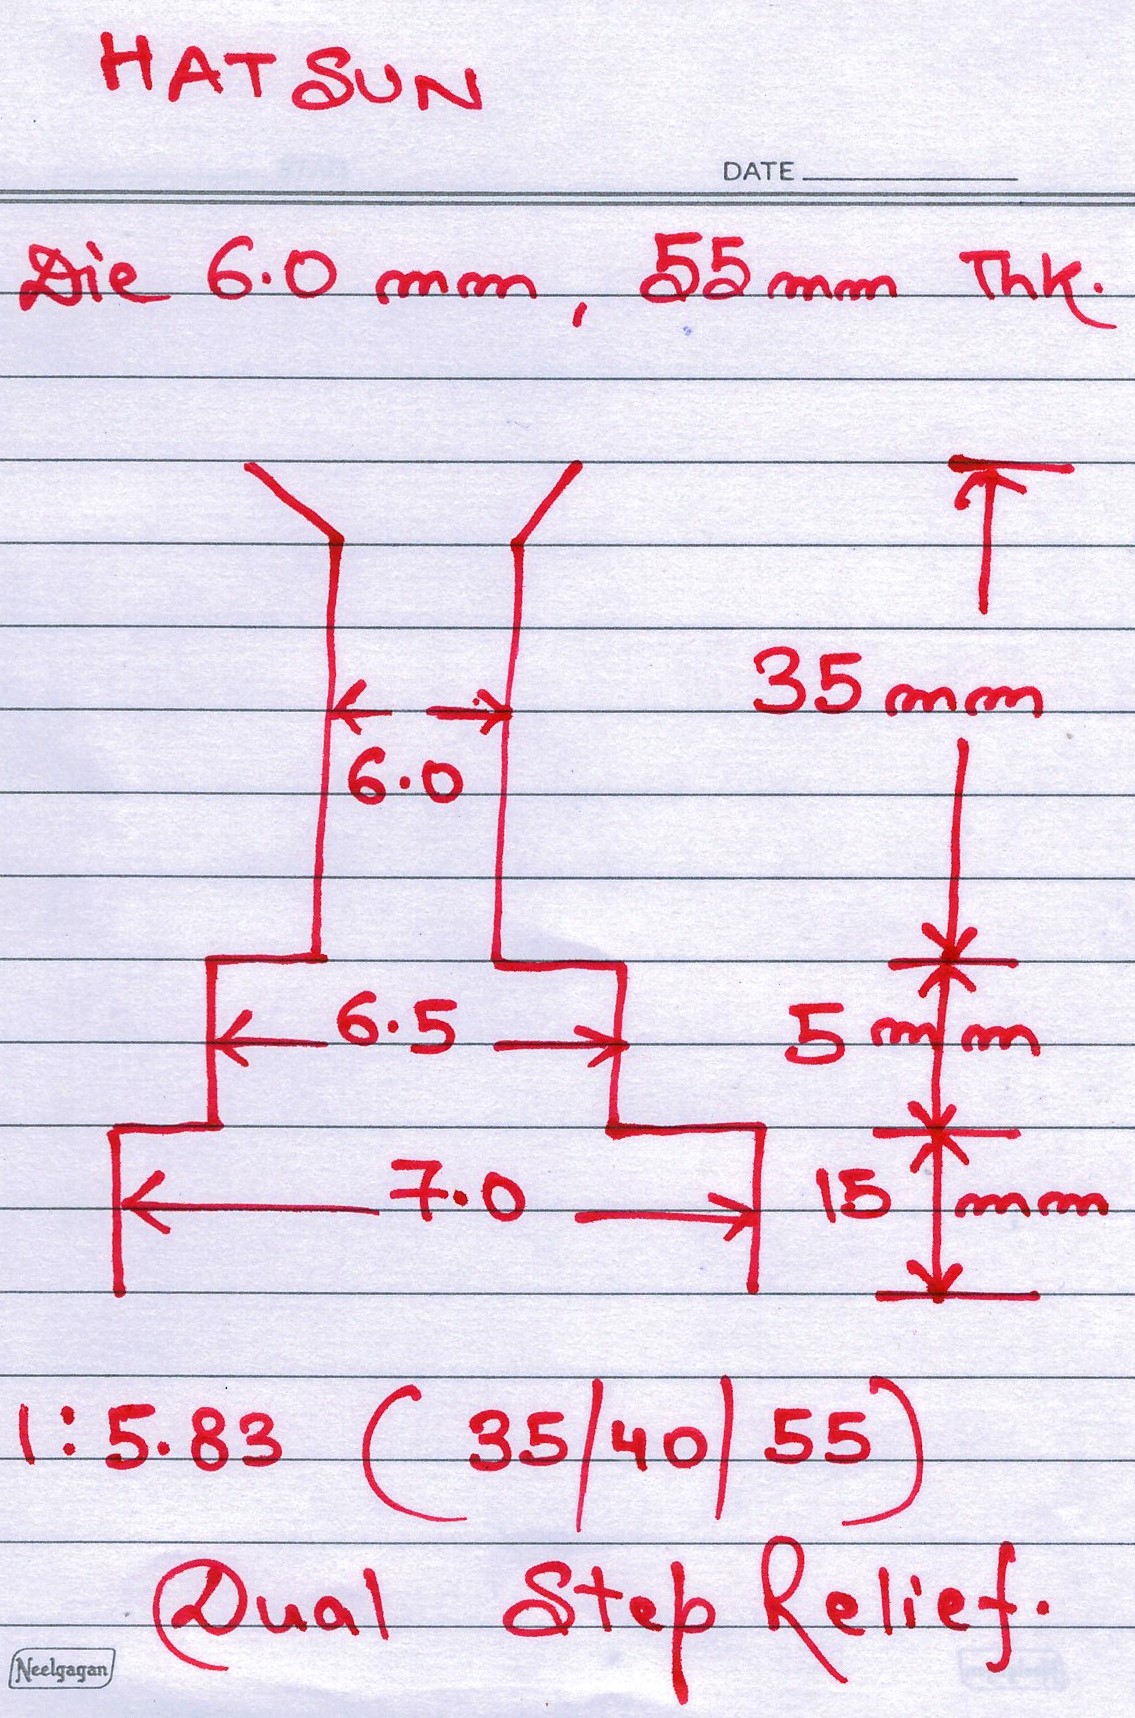 HATSUN
DATE
Die 6.0 mm, 55 mm Thk.
35 mm
6.0
6.5
5 mm
7.0
15 mm
1:5.83 (35/40/55)
Dual Step Relief.
Neelgagan